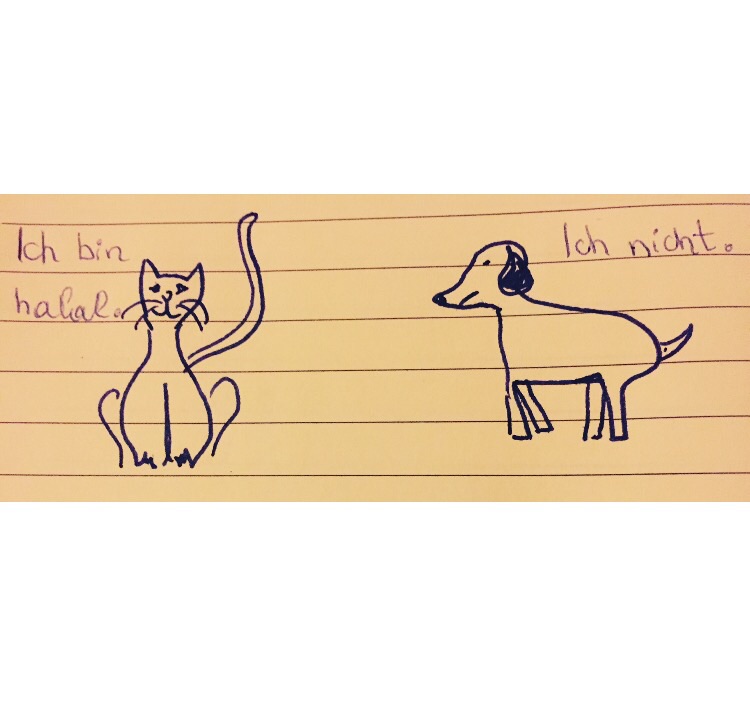 Ich bin
halal.
Ich nicht.